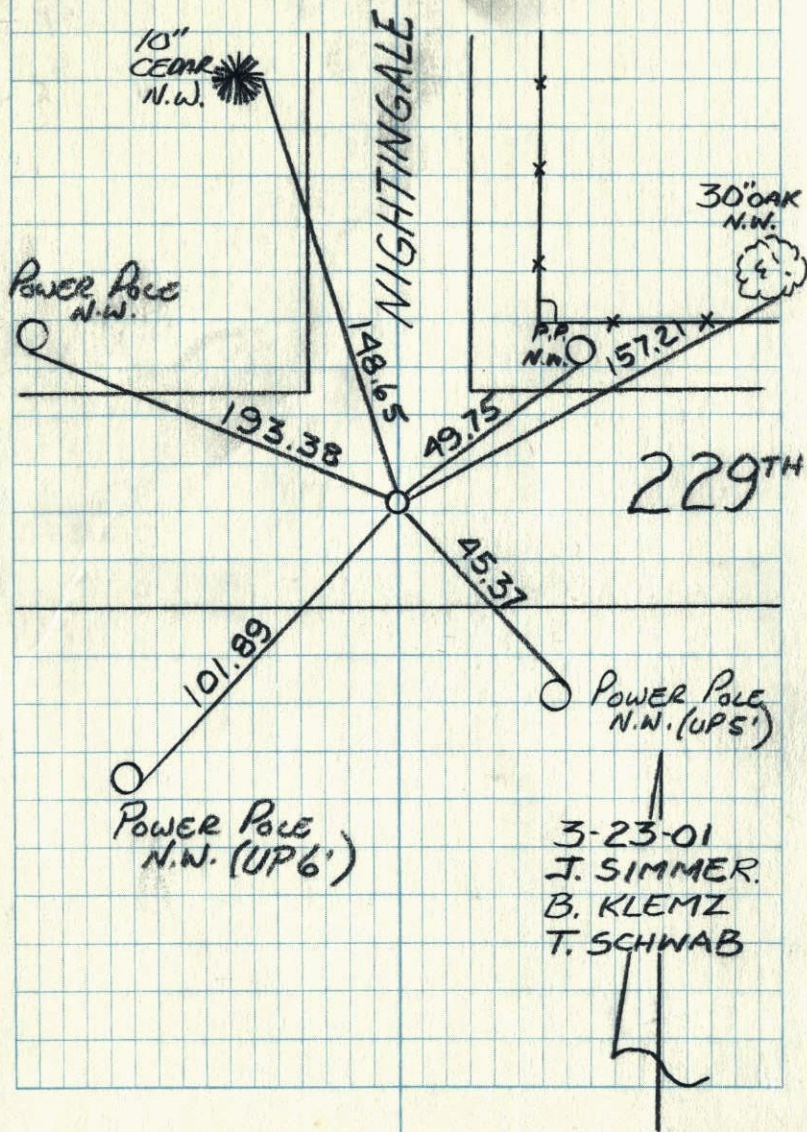 10"
CEDAR
N.W.
NIGHTINGALE
30" OAK
N.W.
POWER POLE
N.W.
P.P.
N.W.
148.65
157.21
193.38
49.75
229TH
45.37
101.89
POWER POLE
N.W. (UP 5')
POWER POLE
N.W. (UP 6')
3-23-01
J. SIMMER.
B. KLEMZ
T. SCHWAB